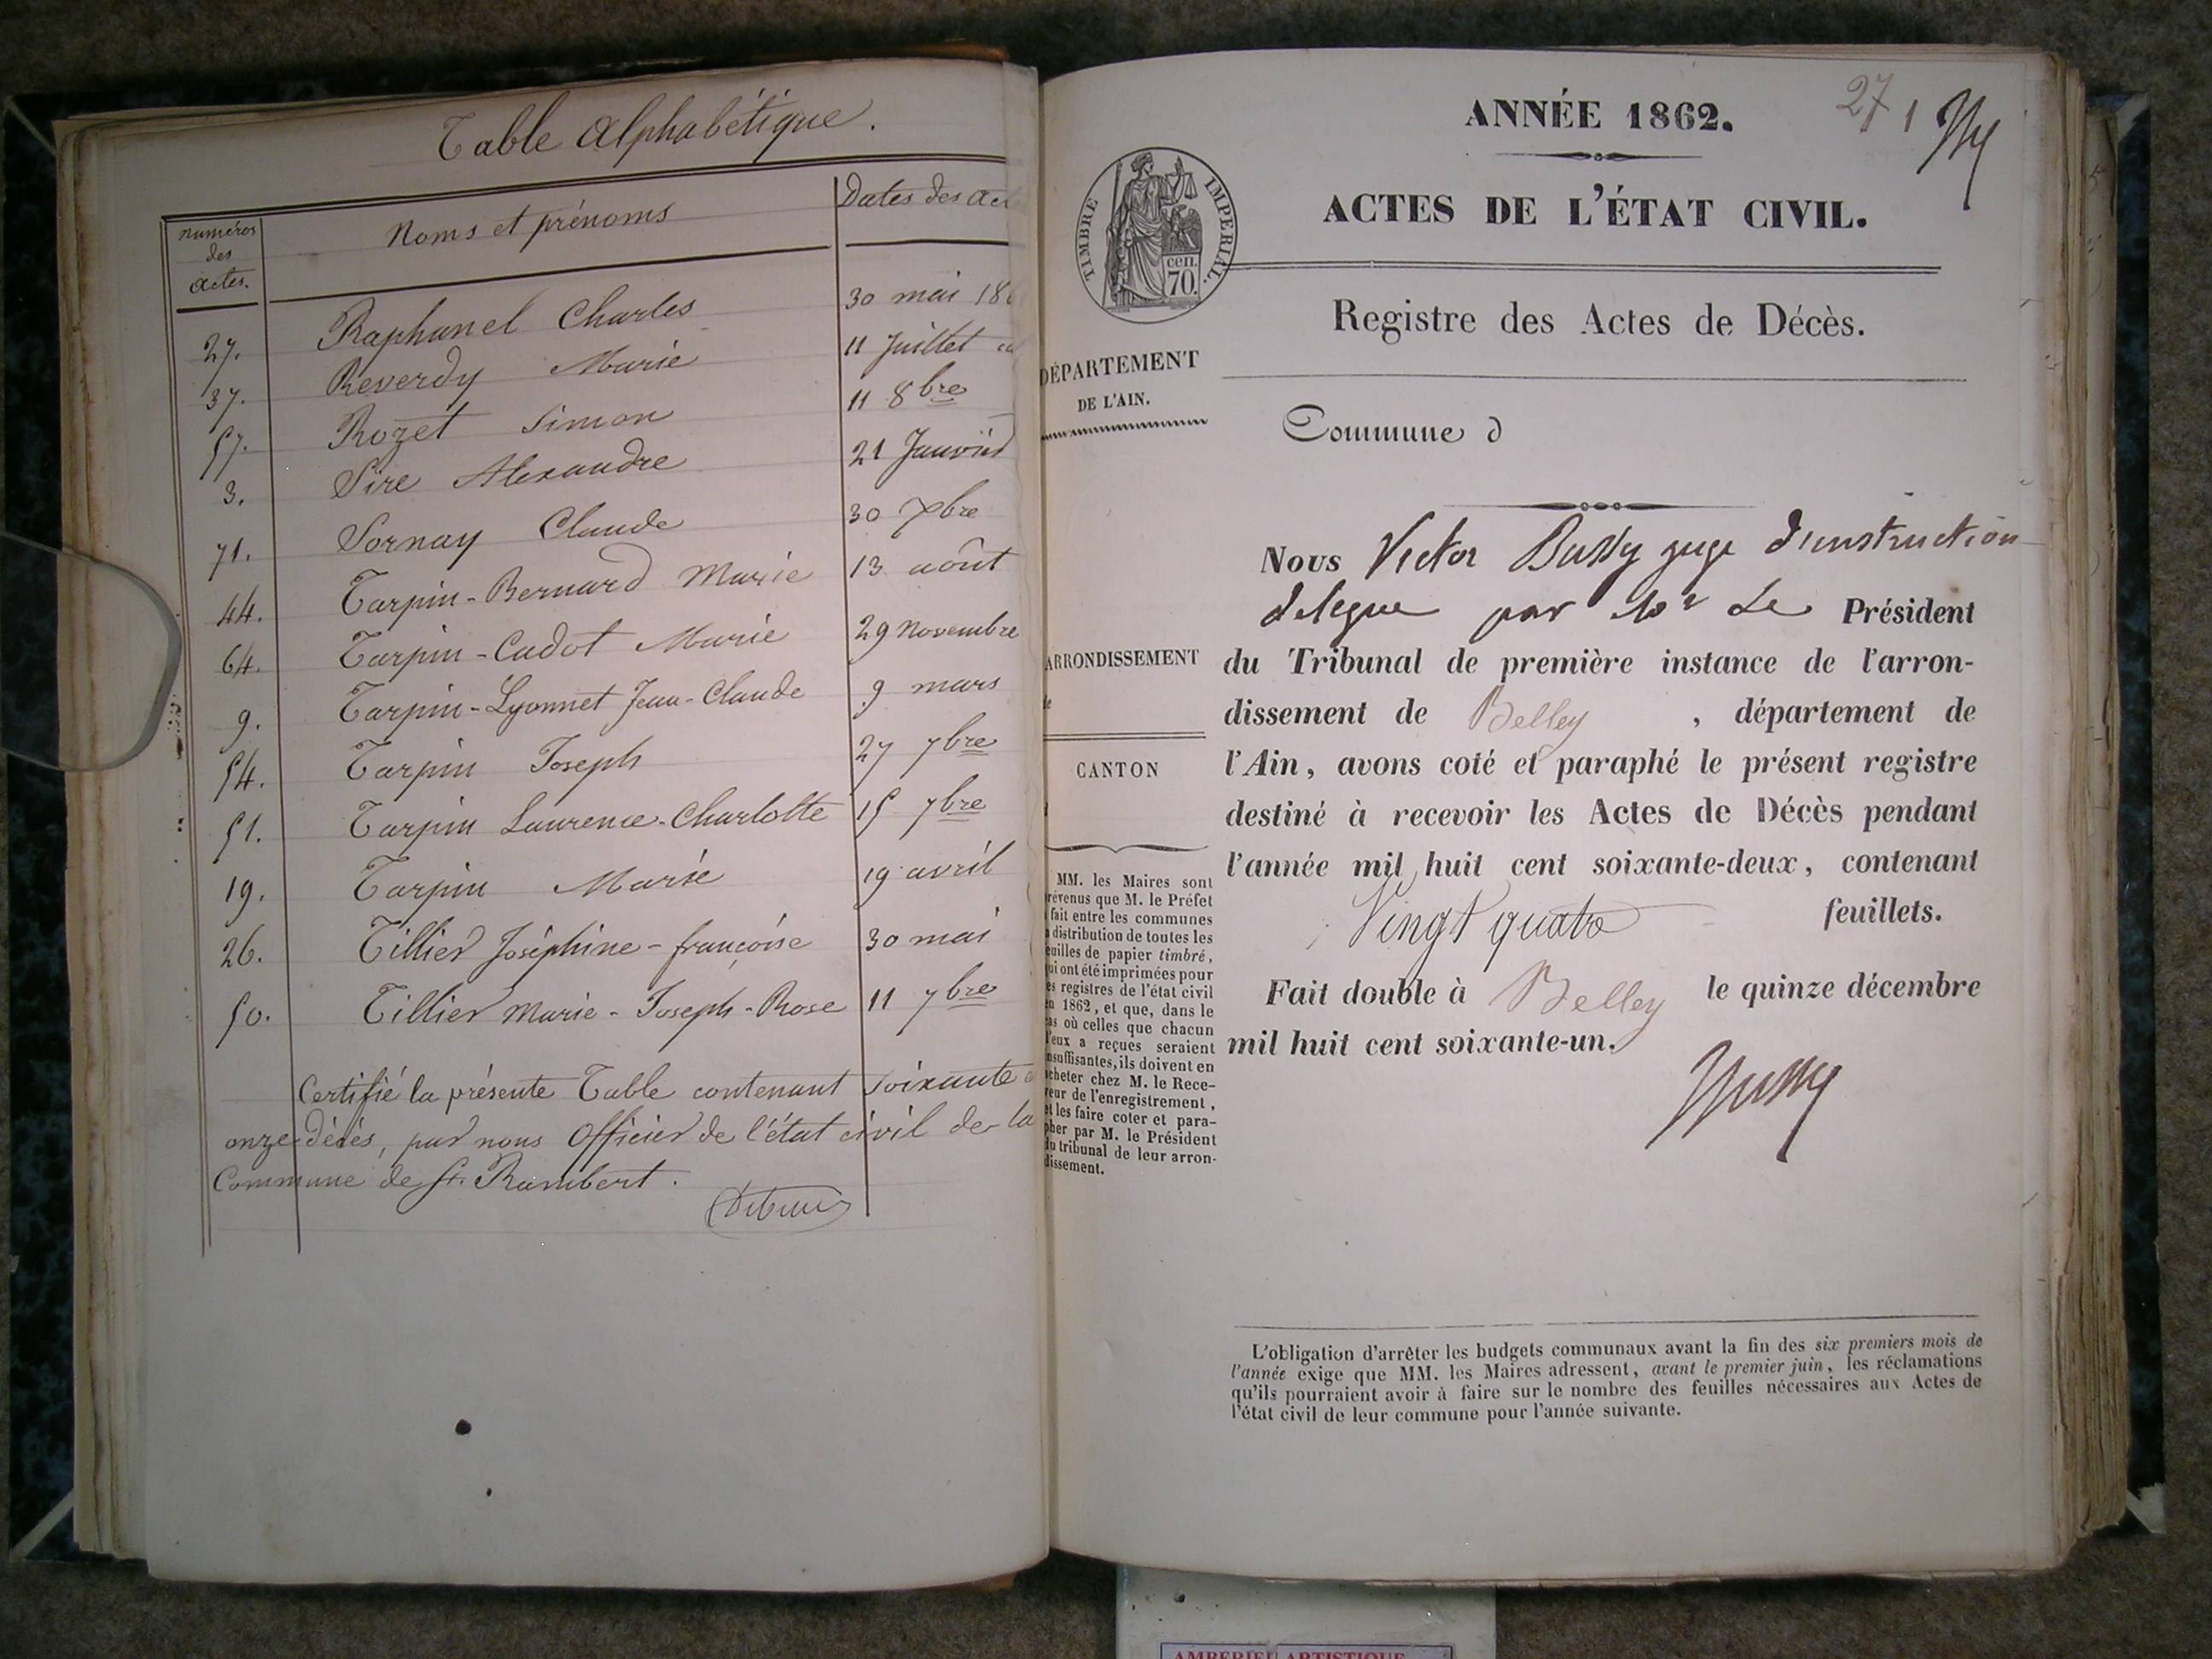 Table Alphabétique.
numéros des actes.
Noms et prénoms
Dates des act
27. Raphanel Charles 30 mai 186
37. Reverdy Marie 11 Juillet
57. Rozet Simon 11 8bre
3. Sire Alexandre 21 Janvier
71. Sornay Claude 30 Xbre
44. Tarpin-Bernard Marie 13 août
64. Tarpin-Cadot Marie 29 Novembre
9. Tarpin-Lyonnet Jean-Claude 9 mars
54. Tarpin Joseph 27 7bre
51. Tarpin Laurence-Charlotte 15 7bre
19. Tarpin Marie 19 avril
26. Tillier Joséphine-françoise 30 mai
50. Tillier Marie-Joseph-Rose 11 7bre
Certifié la présente Table contenant soixante
onze décès, par nous Officier de l'état civil de la
Commune de St. Rambert.
27 1
ANNÉE 1862.
ACTES DE L'ÉTAT CIVIL.
TIMBRE IMPERIAL.
cen.
70.
Registre des Actes de Décès.
DÉPARTEMENT
DE L'AIN.
Commune d
Nous Victor Bussy juge d'instruction
délégué par Mr Le Président
ARRONDISSEMENT
du Tribunal de première instance de l'arron-
dissement de Belley , département de
l'Ain, avons coté et paraphé le présent registre
destiné à recevoir les Actes de Décès pendant
l'année mil huit cent soixante-deux, contenant
Vingt quatre feuillets.
Fait double à Belley le quinze décembre
mil huit cent soixante-un.
Bussy
CANTON
MM. les Maires sont
révenus que M. le Préfet
fait entre les communes
a distribution de toutes les
euilles de papier timbré,
ui ont été imprimées pour
es registres de l'état civil
en 1862, et que, dans le
as où celles que chacun
d'eux a reçues seraient
nsuffisantes, ils doivent en
cheter chez M. le Rece-
veur de l'enregistrement,
et les faire coter et para-
pher par M. le Président
du tribunal de leur arron-
dissement.
L'obligation d'arrêter les budgets communaux avant la fin des six premiers mois de
l'année exige que MM. les Maires adressent, avant le premier juin, les réclamations
qu'ils pourraient avoir à faire sur le nombre des feuilles nécessaires aux Actes de
l'état civil de leur commune pour l'année suivante.
AMBERIEU ARTISTIQUE